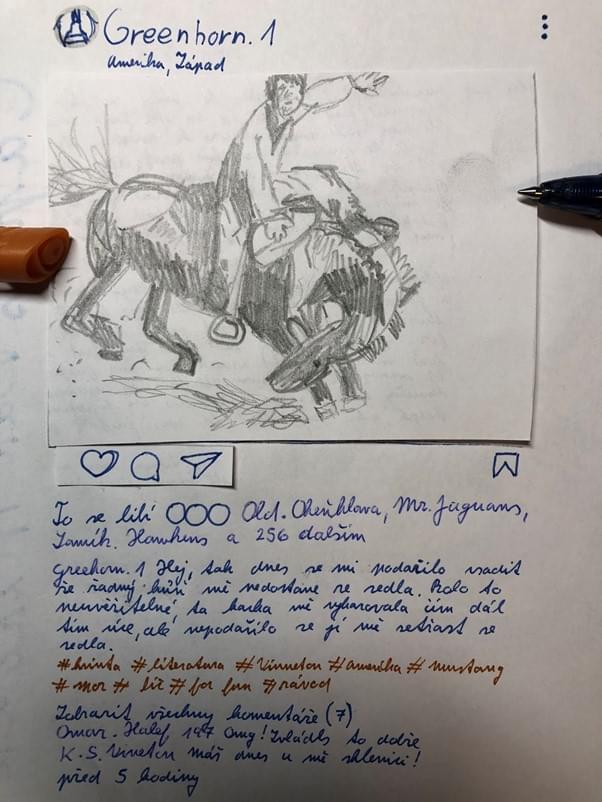 Greenhorn.1
Amerika, Západ
To se líbí Old. Mr. Jaguans,
Hawkens a 256 dalším
greehorn.1 Hej, tak dnes se mi podařilo vsadit
že řádný kůň mě nedostane ze sedla. Bylo to
neuvěřitelné, ta mě čím dál
tím více, ale nepodařilo se jí mě setřást ze
sedla.
#literatura #Vinnetou #amerika #mustang
# lit # for fun #závod
Zobrazit všechny komentáře (7)
Omar. Halef 197 Omg! Zvládls to dobře
K.S. Vinetou máš dnes u mě sklenici!
před 5 hodiny